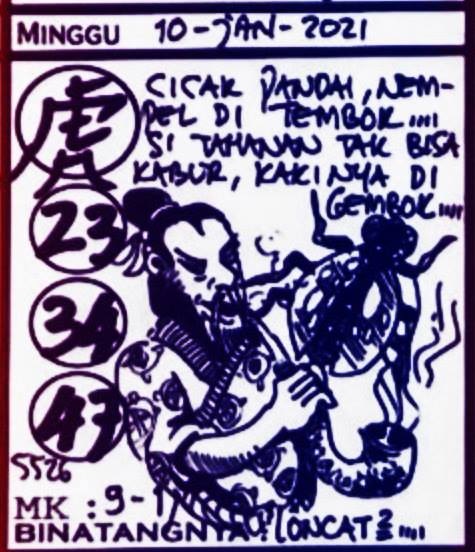 MINGGU 10-JAN-2021
CICAK PANDAI, NEM-
PEL DI TEMBOK....
SI TAHANAN TAK BISA
KABUR, KAKINYA DI
GEMBOK....
虎
23
34
43
5526
MK : 9-1
BINATANGNYA : LONCAT2....